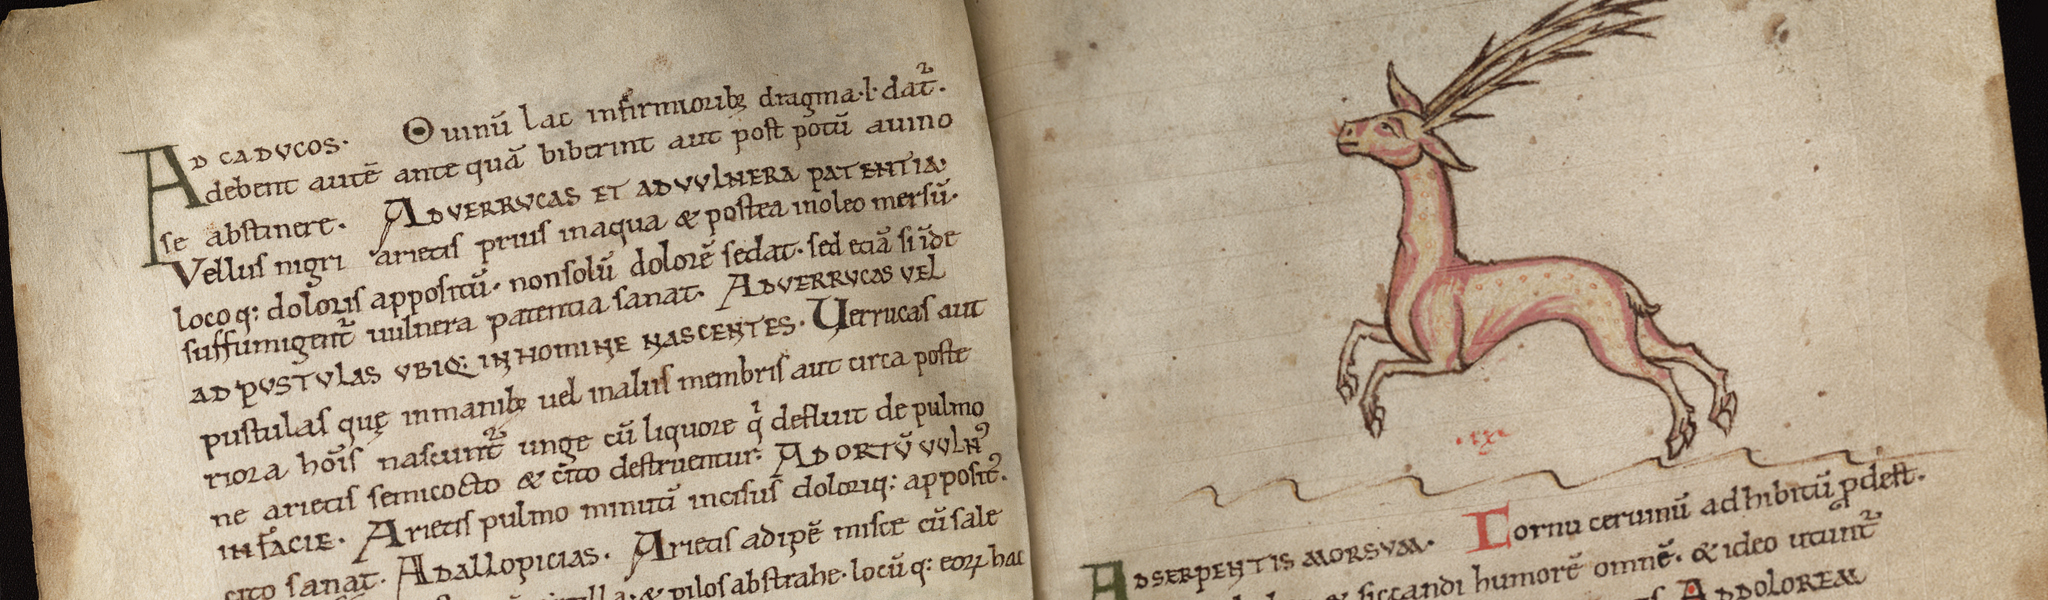 AD CADVCOS. Ouinū lac infirmiorib; dragma .I. dat̄.
debent autē ante quā biberint aut post potū a uino
se abstinere. AD VERRVCAS ET AD VVLNERA PATENTIA.
Vellus nigri arietis prius in aqua & postea in oleo mersū.
locoq: doloris appositū. non solū dolorē sedat. sed etiā si īde
suffumigent̄ uulnera patentia sanat. AD VERRVCAS VEL
AD PVSTVLAS VBIQ: IN HOMINE NASCENTES. Verrucas aut
pustulas quę in manib; uel in aliis membris aut circa poste
riora hoīs nascunt̄ unge cū liquore q̇ defluit de pulmo
ne arietis semicocto & cito destruentur. AD ORTŪ VVLN̄
IN FACIE. Arietis pulmo minutī incisus doloriq: apposit̄.
cito sanat. AD ALLOPICIAS. Arietis adipē misce cū sale
& pilos abstrahe. locū q: eoꝝ hac
.ix.
AD SERPENTIS MORSVM. Cornu ceruinū adhibitū ꝓdest.
& siccandi humorē omnē. & ideo utunt̄
AD DOLOREM